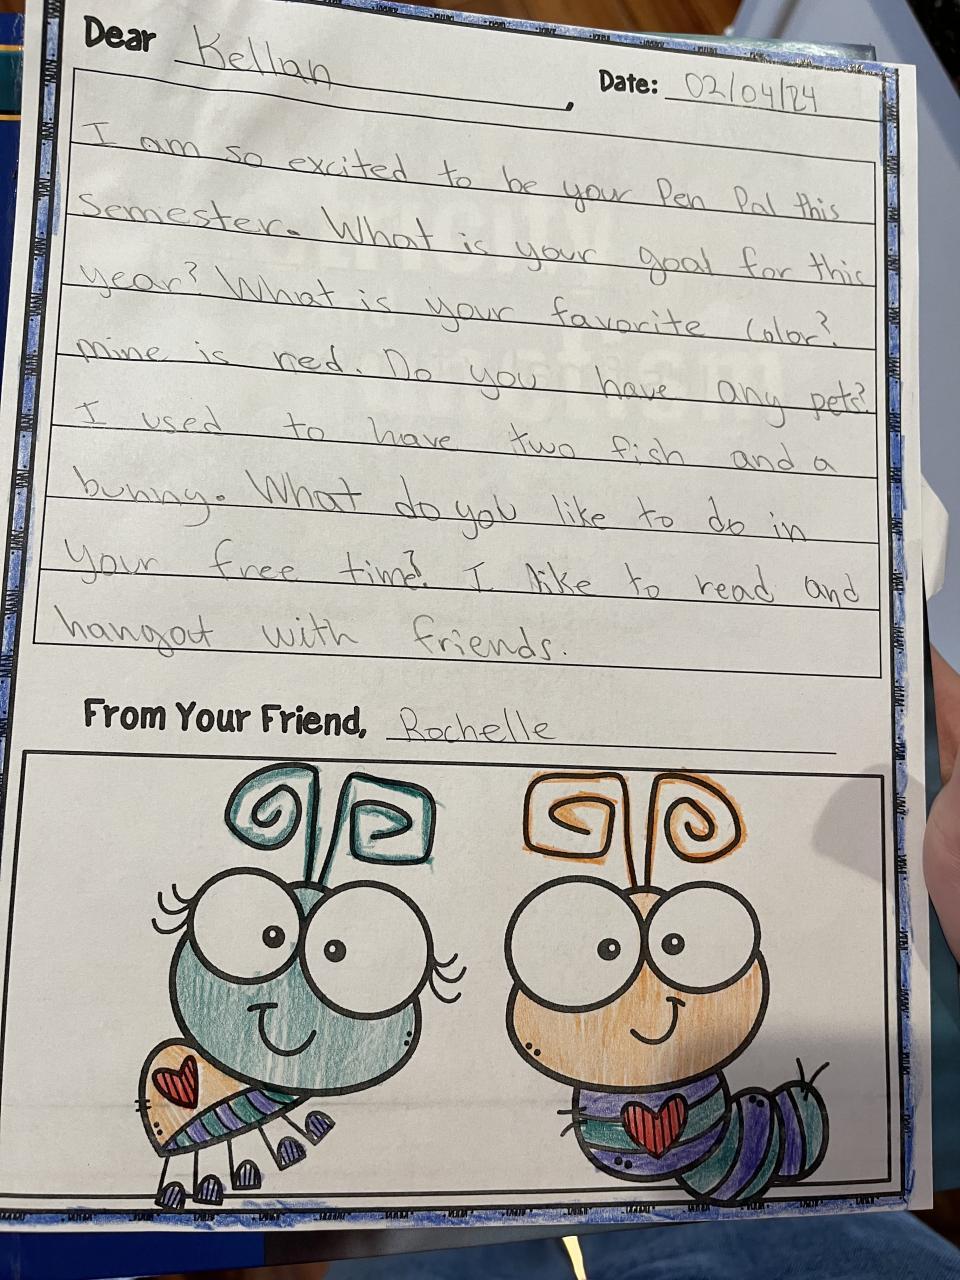 Dear Kellan,
Date: 02/04/24
I am so excited to be your Pen Pal this
semester. What is your goal for this
year? What is your favorite color?
mine is red. Do you have any pets?
I used to have two fish and a
bunny. What do you like to do in
your free time? I like to read and
hangout with friends.
From Your Friend, Rochelle